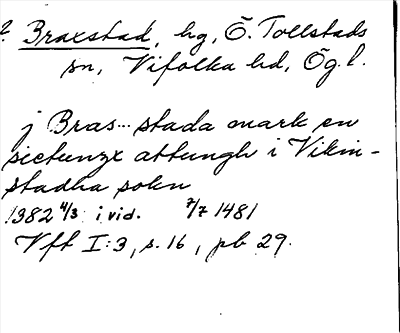 ? Braxstad, hg, Ö. Tollstads
sn, Vifolka hd, Ög. l.
j Bras... stada mark en
siettungx attungh i Vikin-
stadha sokn
1382 4/3 i vid. 7/7 1481
Vft I:3, s. 16, pb 29.